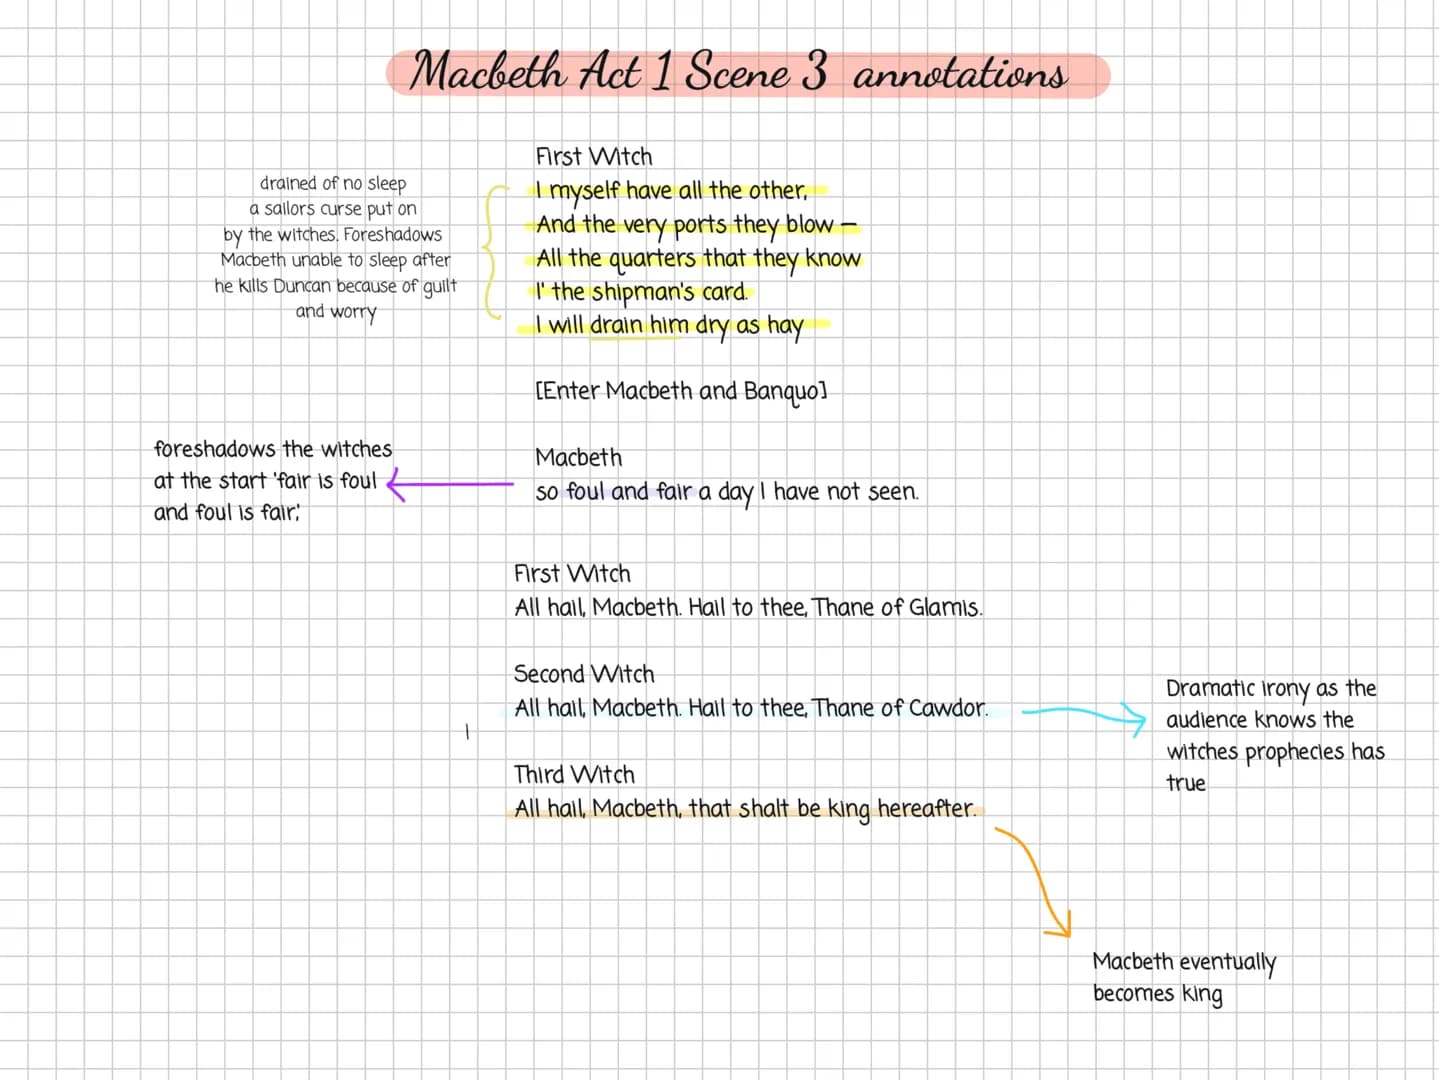 Macbeth Act 1 Scene 3 annotations
First Witch
I myself have all the other,
And the very ports they blow –
All the quarters that they know
I' the shipman's card.
I will drain him dry as hay
drained of no sleep
a sailors curse put on
by the witches. Foreshadows
Macbeth unable to sleep after
he kills Duncan because of guilt
and worry
[Enter Macbeth and Banquo]
Macbeth
so foul and fair a day I have not seen.
foreshadows the witches
at the start 'fair is foul
and foul is fair;'
First Witch
All hail, Macbeth. Hail to thee, Thane of Glamis.
Second Witch
All hail, Macbeth. Hail to thee, Thane of Cawdor.
Dramatic irony as the
audience knows the
witches prophecies has
true
|
Third Witch
All hail, Macbeth, that shalt be king hereafter.
Macbeth eventually
becomes king